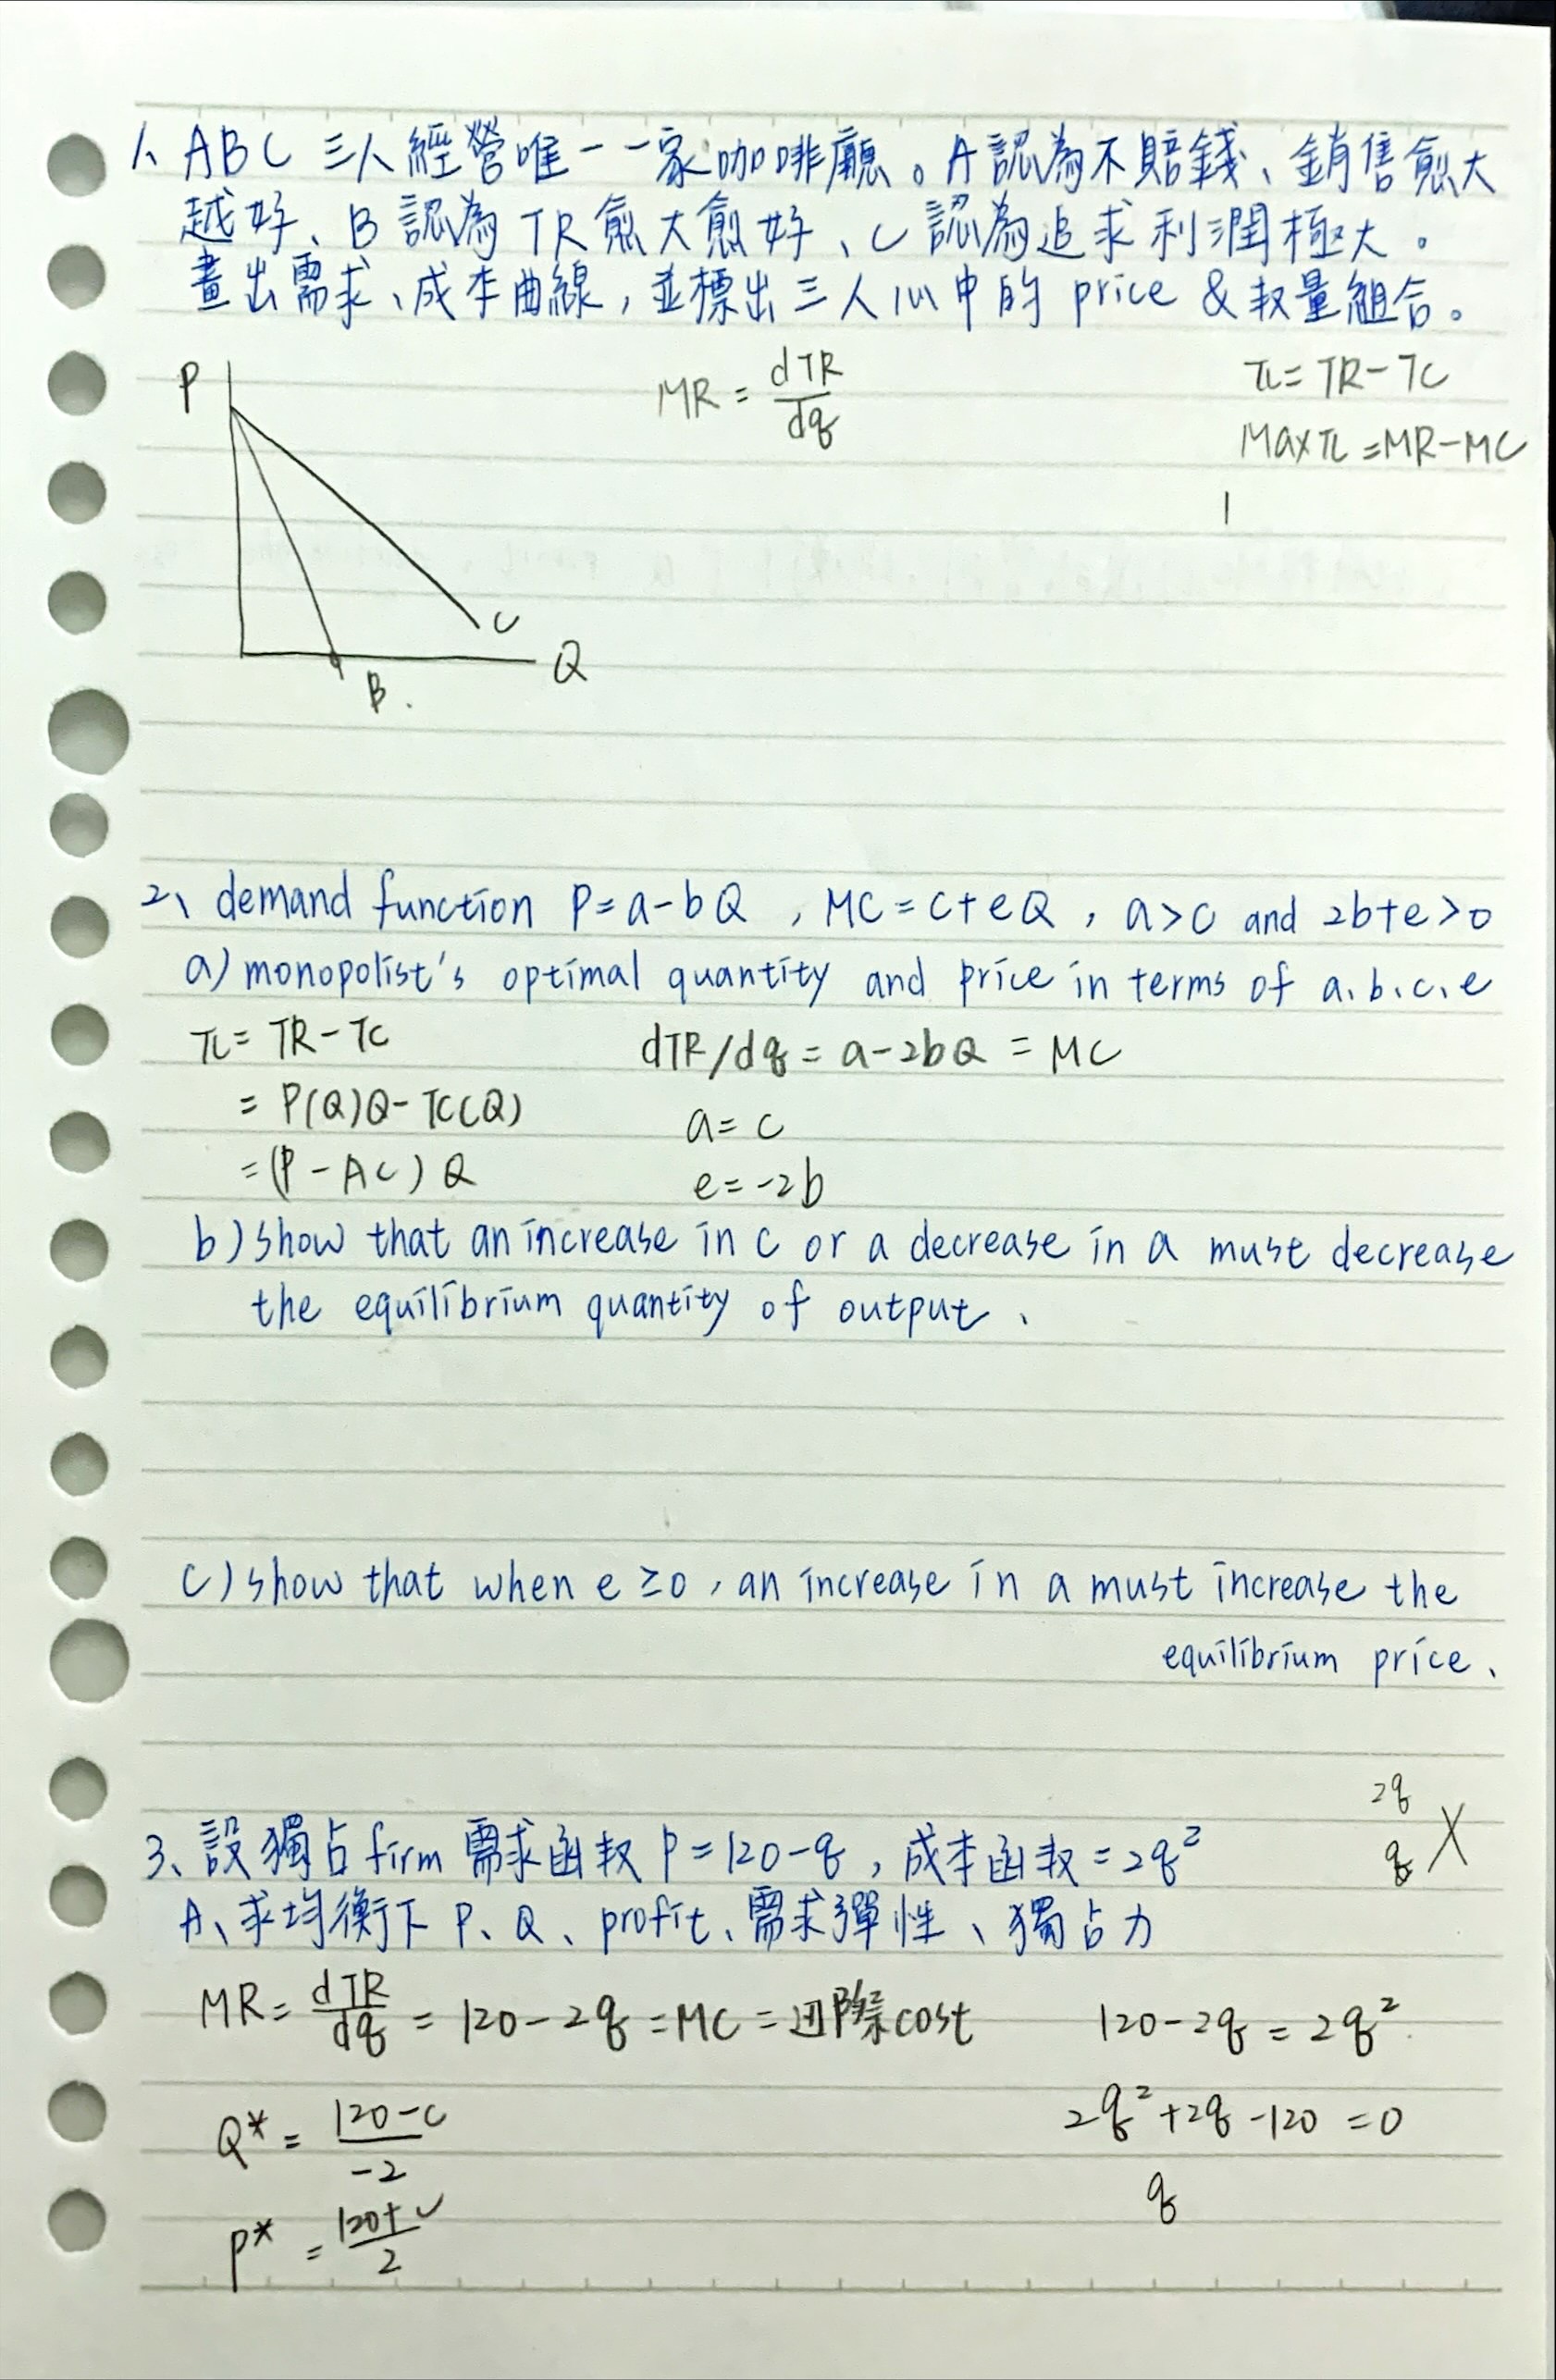 1、ABC 三人經營唯一一家咖啡廳。A認為不賠錢、銷售愈大
越好、B認為TR愈大愈好、C認為追求利潤極大。
畫出需求、成本曲線，並標出三人心中的 price & 数量組合。
P
MR = dTR/dq
π = TR - TC
Max π = MR - MC
C
Q
B.
2、demand function P = a - bQ , MC = c + eQ , a > c and 2b + e > 0
a) monopolist's optimal quantity and price in terms of a、b、c、e
π = TR - TC
dTR/dq = a - 2bQ = MC
= P(Q)Q - TC(Q)
a = c
= (P - AC) Q
e = -2b
b) show that an increase in c or a decrease in a must decrease
the equilibrium quantity of output、
c) show that when e ≥ 0 , an increase in a must increase the
equilibrium price、
2q
q
3、設獨占firm 需求函数 P = 120 - q , 成本函数 = 2q²
A、求均衡下 P、Q、profit、需求彈性、獨占力
MR = dTR/dq = 120 - 2q = MC = 边際cost
120 - 2q = 2q²
Q* = 120 - c / -2
2q² + 2q - 120 = 0
q
P* = 120 + c / 2